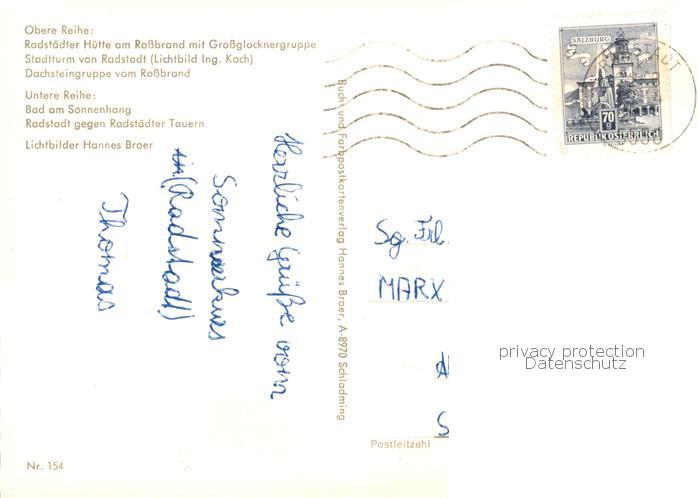 Obere Reihe:
Radstädter Hütte am Roßbrand mit Großglocknergruppe
Stadtturm von Radstadt (Lichtbild Ing. Koch)
Dachsteingruppe vom Roßbrand
Untere Reihe:
Bad am Sonnenhang
Radstadt gegen Radstädter Tauern
Lichtbilder Hannes Broer
Herzliche Grüße vom
Sommerkurs
in (Radstadt)
Thomas
Nr. 154
Buch- und Farbpostkartenverlag Hannes Broer, A-8970 Schladming
SALZBURG
70
g
REPUBLIK ÖSTERREICH
RADSTADT
Sg. Frl.
MARX
S
Postleitzahl
privacy protection
Datenschutz